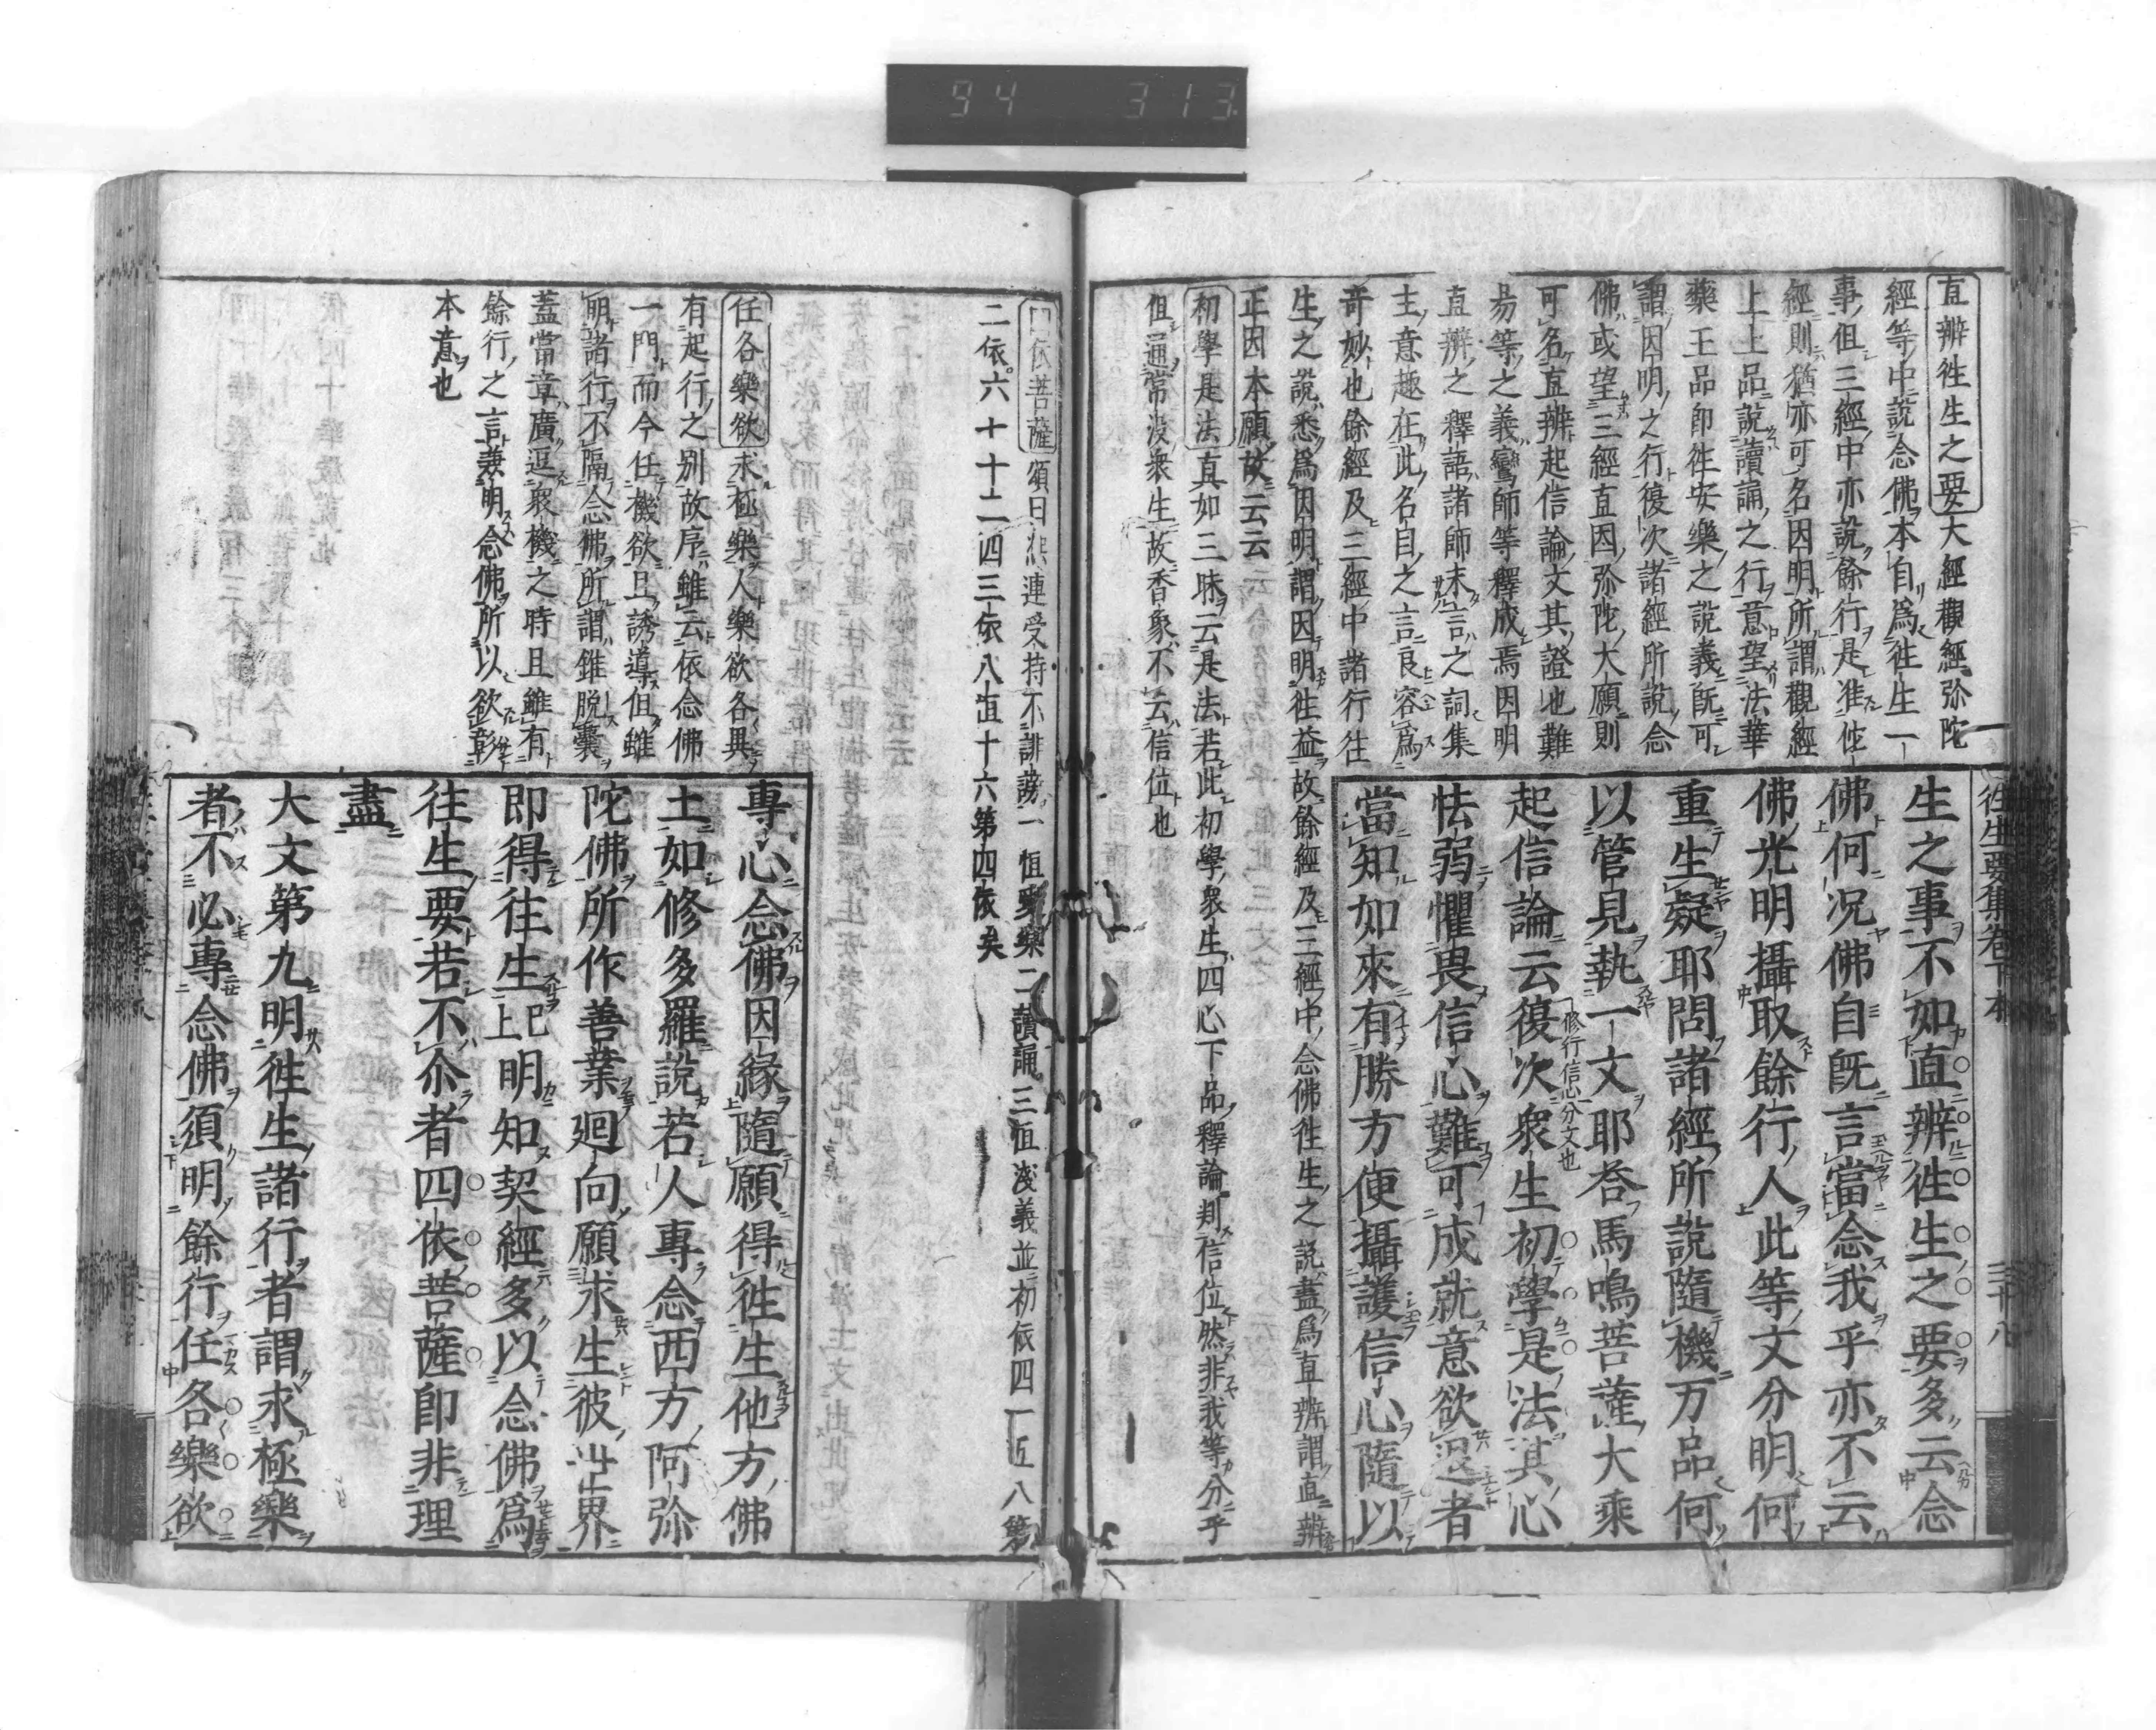 直辨往生之要大經觀經弥陀
經等中說念佛本自爲往生一
事但三經中亦說餘行是准他
經則猶亦可名因明所謂觀經
上上品說讀誦之行意望法華
藥王品即往安樂之說義既可
謂因明之行復次諸經所說念
佛或望三經直因弥陀大願則
可名直辨起信論文其證也難
易等之義鸞師等釋成焉因明
直辨之釋語諸師未言之詞集
主意趣在此名自之言良容爲
奇妙也餘經及三經中諸行往
生之說悉爲因明謂因明往益故餘經及三經中念佛往生之說盡爲直辨謂直辨
正因本願故云云
初學是法真如三昧云是法若此初學衆生四心下品釋論判信位然非我等分乎
但通常没衆生故香象不云信位也
往生要集卷下本
三十八
生之事不如直辨往生之要多云念
佛何況佛自既言當念我乎亦不云
佛光明攝取餘行人此等文分明何
重生疑耶問諸經所說隨機万品何
以管見執一文耶答馬鳴菩薩大乘
起信論云復次衆生初學是法其心
修行信心分文也
怯弱懼畏信心難可成就意欲退者
當知如來有勝方便攝護信心隨以
四依菩薩頌曰熈連受持不誹謗一恒愛樂二讀誦三恒淺義並初依四一近八第
二依六十十二四三依八恒十六第四依矣
任各樂欲求極樂人樂欲各異
有起行之別故序雖云依念佛
一門而今任機欲且誘導但雖
明諸行不隔念佛所謂錐脫囊
蓋當章廣逗衆機之時且雖有
餘行之言兼明念佛所以欽彰
本意也
專心念佛因緣隨願得往生他方佛
土如修多羅說若人專念西方阿弥
陀佛所作善業廻向願求生彼世界
即得往生已上明知契經多以念佛爲
往生要若不尒者四依菩薩即非理
盡
大文第九明往生諸行者謂求極樂
者不必專念佛須明餘行任各樂欲